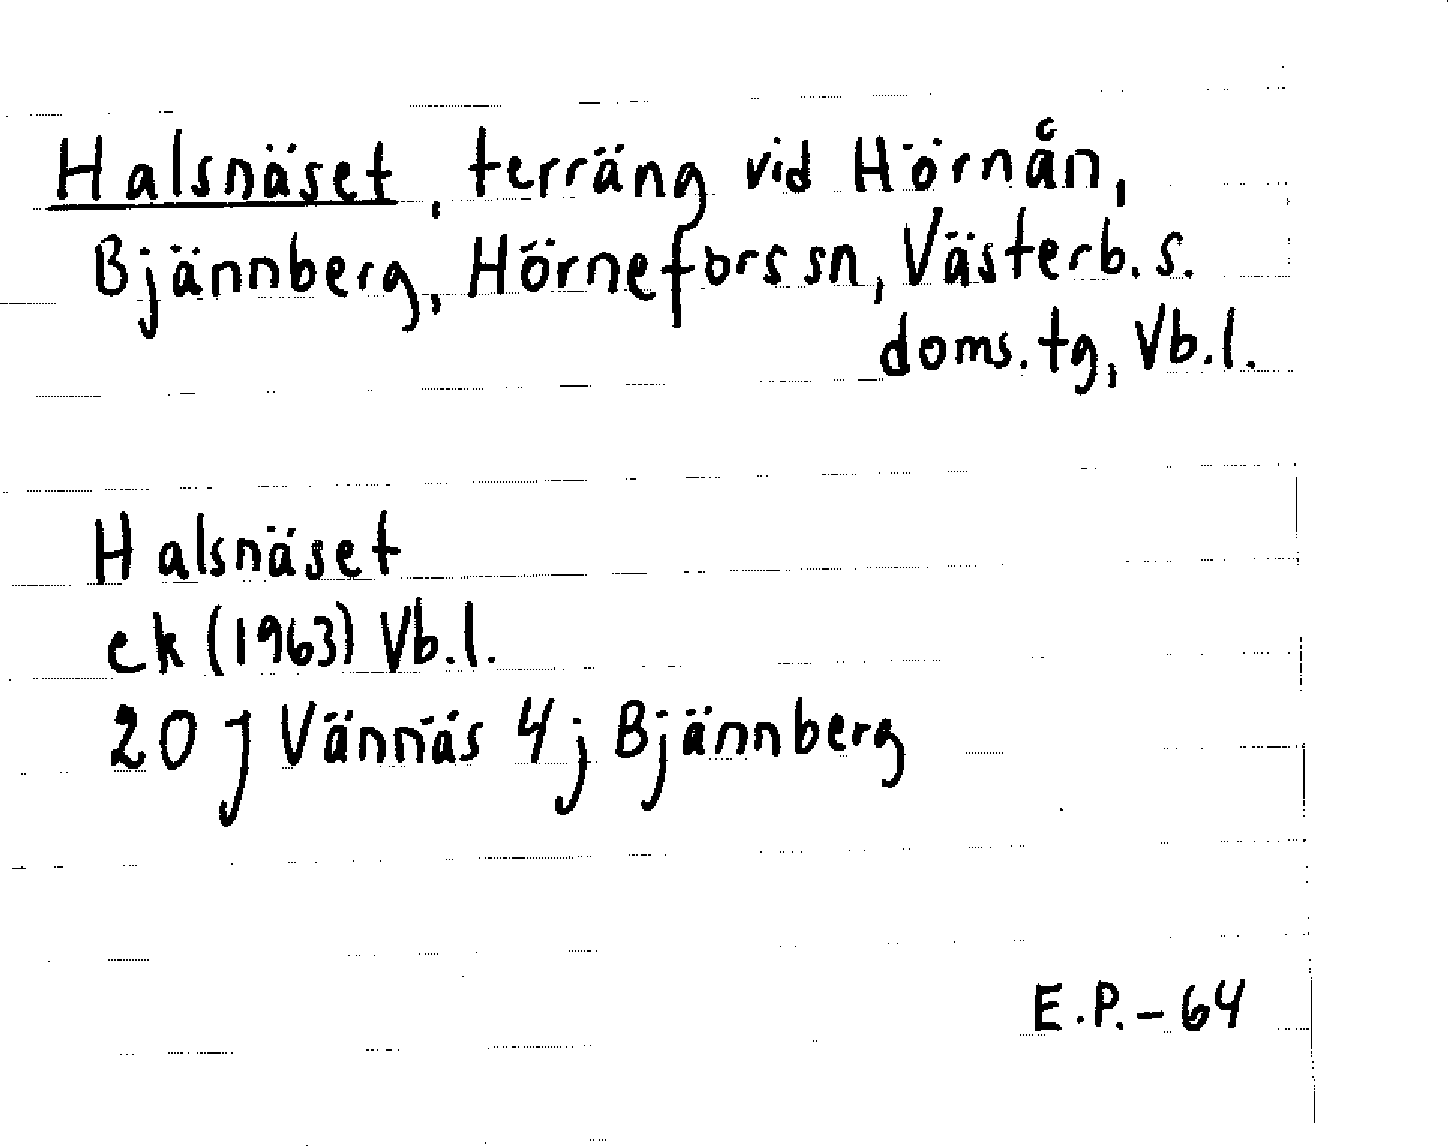 Halsnäset, terräng vid Hörnån,
Bjännberg, Hörnefors sn, Västerb. s.
doms. tg, Vb. l.
Halsnäset
ek (1963) Vb. l.
20 J Vännäs 4 j Bjännberg
E.P. - 64